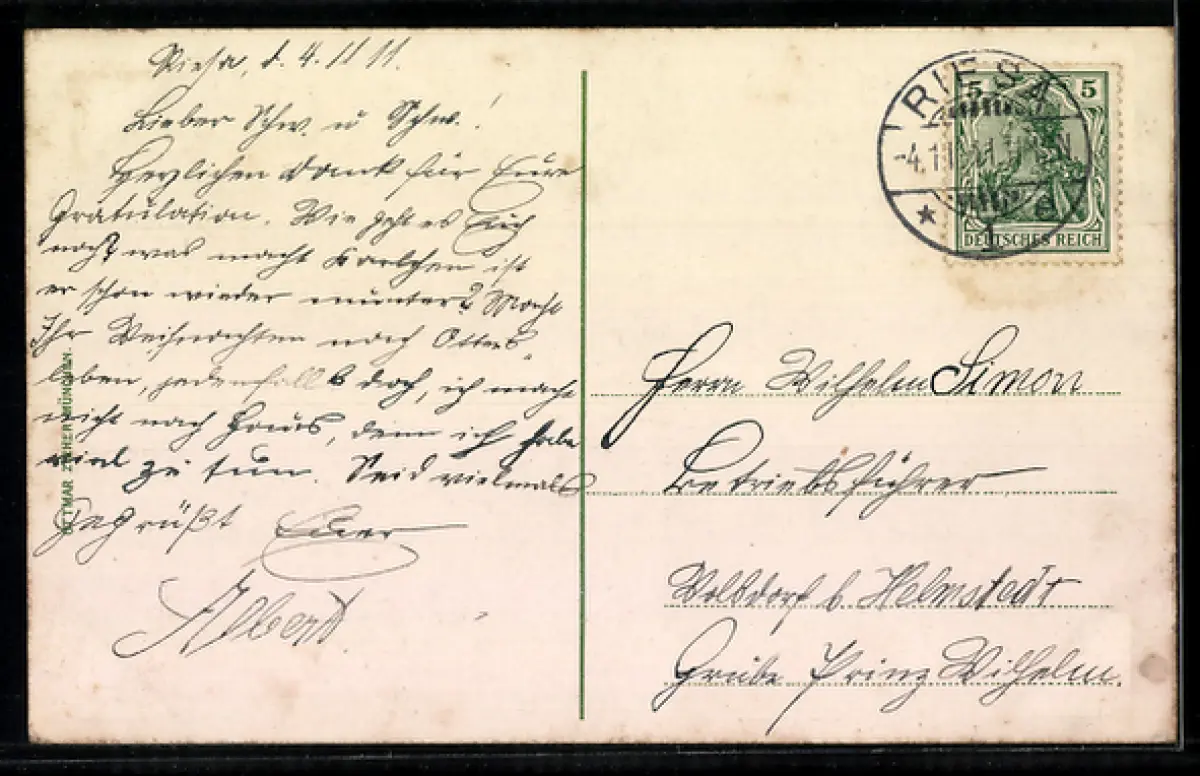 Riesa, d. 4.11.11.
Lieber Schw. u Schw.!
Herzlichen Dank für Eure
Gratulation. Wie geht es Euch
noch? was macht Karlchen ist
er schon wieder munter? Macht
Ihr Weihnachten nach Otters
leben, jedenfalls doch, ich mache
nicht nach Haus, denn ich habe
viel zu tun. Seid vielmals
gegrüßt Euer
Albert.
OTTMAR ZIEHER, MÜNCHEN.
RIESA
-4.11.11
* 1 a
5 5
DEUTSCHES REICH
Herrn Wilhelm Simon
Betriebsführer
Wolsdorf b. Helmstedt
Grube Prinz Wilhelm.